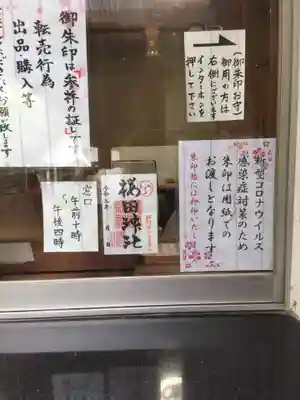 御朱印は参拝の証しです
転売行為
出品・購入等
(御朱印お守)
御用の方は
右側にございます
インターホンを
押して下さい
新型コロナウイルス
感染症対策のため
朱印は用紙での
お渡しとなります
朱印帳には押印いたし
櫻田神社
窓口
午前十時
〜
午後四時